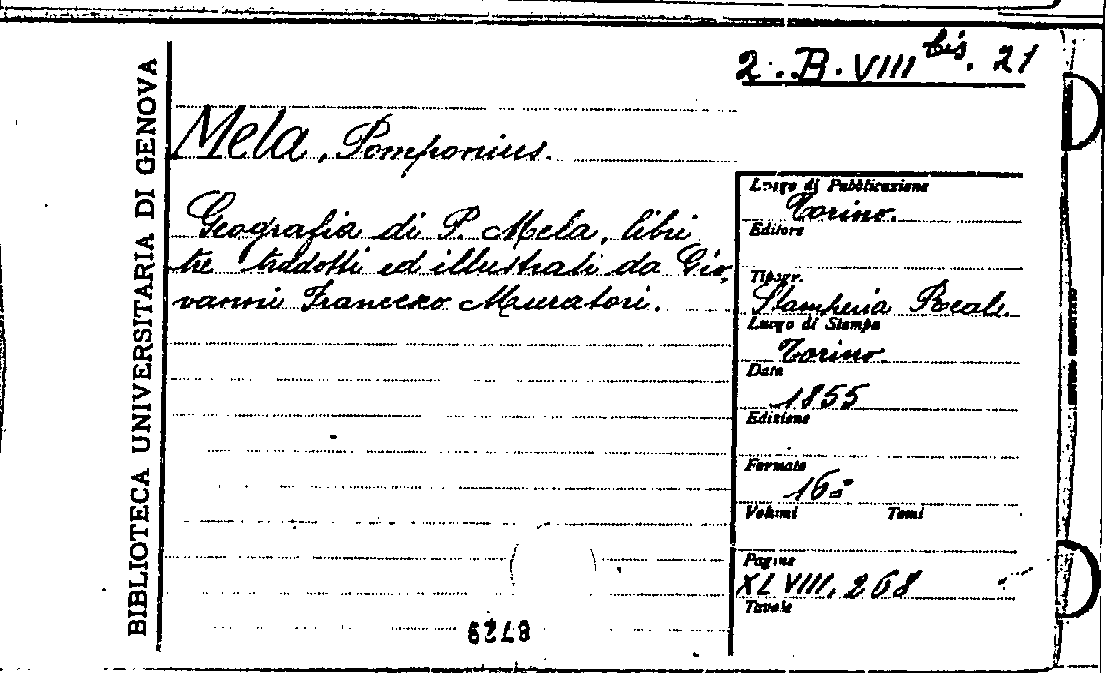 2. B. VIII bis. 21
BIBLIOTECA UNIVERSITARIA DI GENOVA
Mela, Pomponius.
Geografia di P. Mela, libri
tre tradotti ed illustrati da Gio-
vanni Francesco Muratori.
Luogo di Pubblicazione
Torino.
Editore
Tipogr.
Stamperia Reale
Luogo di Stampa
Torino.
Data
1855
Edizione
Formato
16º
Volumi Tomi
Pagine
XLVIII, 268
Tavole